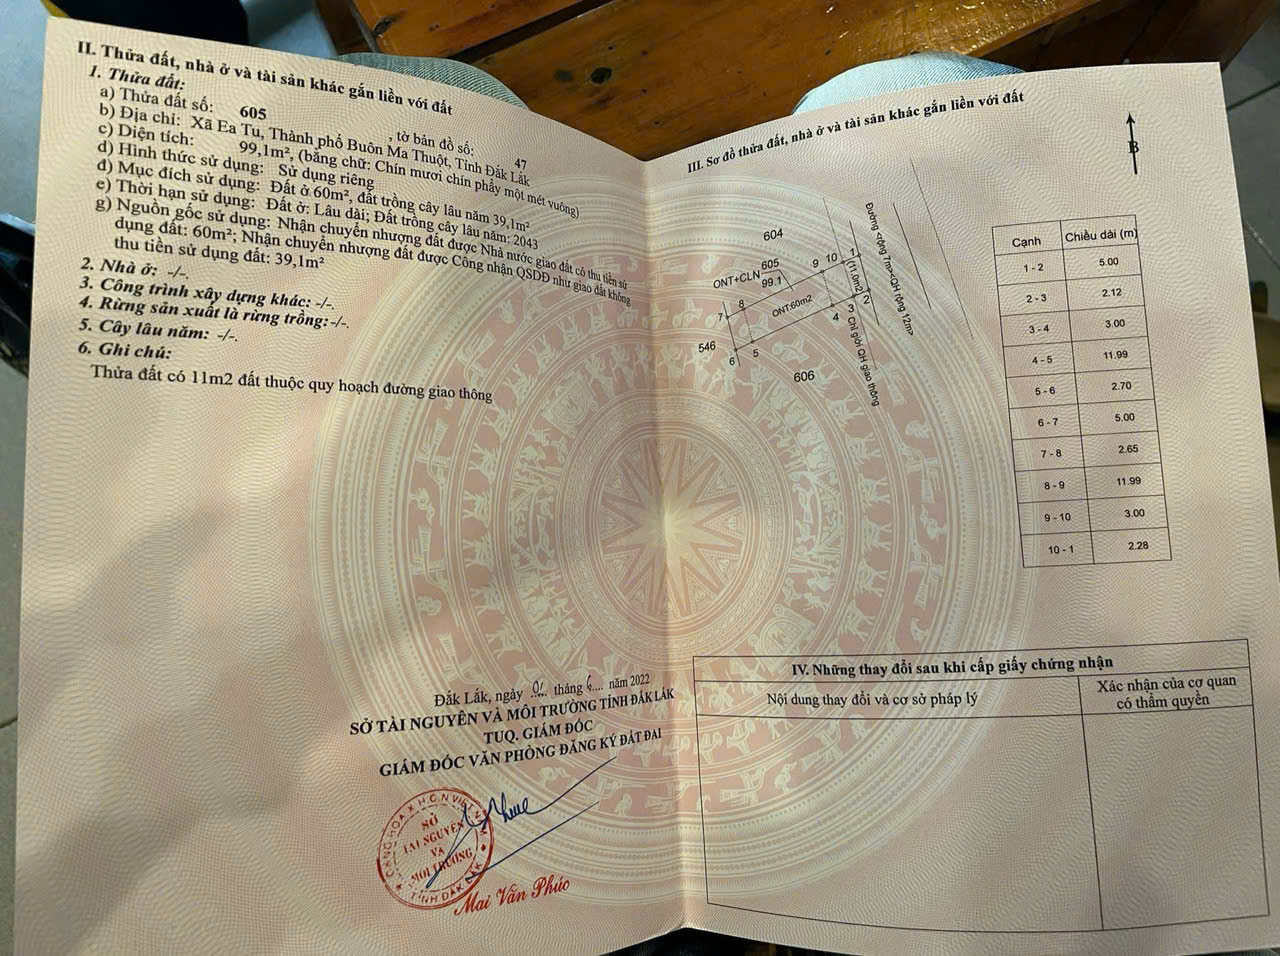 II. Thửa đất, nhà ở và tài sản khác gắn liền với đất
1. Thửa đất:
a) Thửa đất số: 605 , tờ bản đồ số: 47
b) Địa chỉ: Xã Ea Tu, Thành phố Buôn Ma Thuột, Tỉnh Đắk Lắk
c) Diện tích: 99,1m², (bằng chữ: Chín mươi chín phẩy một mét vuông)
d) Hình thức sử dụng: Sử dụng riêng
đ) Mục đích sử dụng: Đất ở 60m², đất trồng cây lâu năm 39,1m²
e) Thời hạn sử dụng: Đất ở: Lâu dài; Đất trồng cây lâu năm: 2043
g) Nguồn gốc sử dụng: Nhận chuyển nhượng đất được Nhà nước giao đất có thu tiền sử
dụng đất: 60m²; Nhận chuyển nhượng đất được Công nhận QSDĐ như giao đất không
thu tiền sử dụng đất: 39,1m²
2. Nhà ở: -/-.
3. Công trình xây dựng khác: -/-.
4. Rừng sản xuất là rừng trồng: -/-.
5. Cây lâu năm: -/-.
6. Ghi chú:
Thửa đất có 11m2 đất thuộc quy hoạch đường giao thông
Đắk Lắk, ngày 01 tháng 6 năm 2022
SỞ TÀI NGUYÊN VÀ MÔI TRƯỜNG TỈNH ĐẮK LẮK
TUQ. GIÁM ĐỐC
GIÁM ĐỐC VĂN PHÒNG ĐĂNG KÝ ĐẤT ĐAI
CỘNG HÒA X.H.C.N VIỆT NAM
SỞ
TÀI NGUYÊN
VÀ
MÔI TRƯỜNG
TỈNH ĐẮK LẮK
Mai Văn Phúc
III. Sơ đồ thửa đất, nhà ở và tài sản khác gắn liền với đất
B
604
ONT+CLN 605
99.1
9 10 1
(11.0m2)
ONT:60m2
7 8
4 3 2
546
6 5
606
Đường <rộng 7m><QH rộng 12m>
Chỉ giới QH giao thông
Cạnh Chiều dài (m)
1 - 2 5.00
2 - 3 2.12
3 - 4 3.00
4 - 5 11.99
5 - 6 2.70
6 - 7 5.00
7 - 8 2.65
8 - 9 11.99
9 - 10 3.00
10 - 1 2.28
IV. Những thay đổi sau khi cấp giấy chứng nhận
Nội dung thay đổi và cơ sở pháp lý
Xác nhận của cơ quan
có thẩm quyền